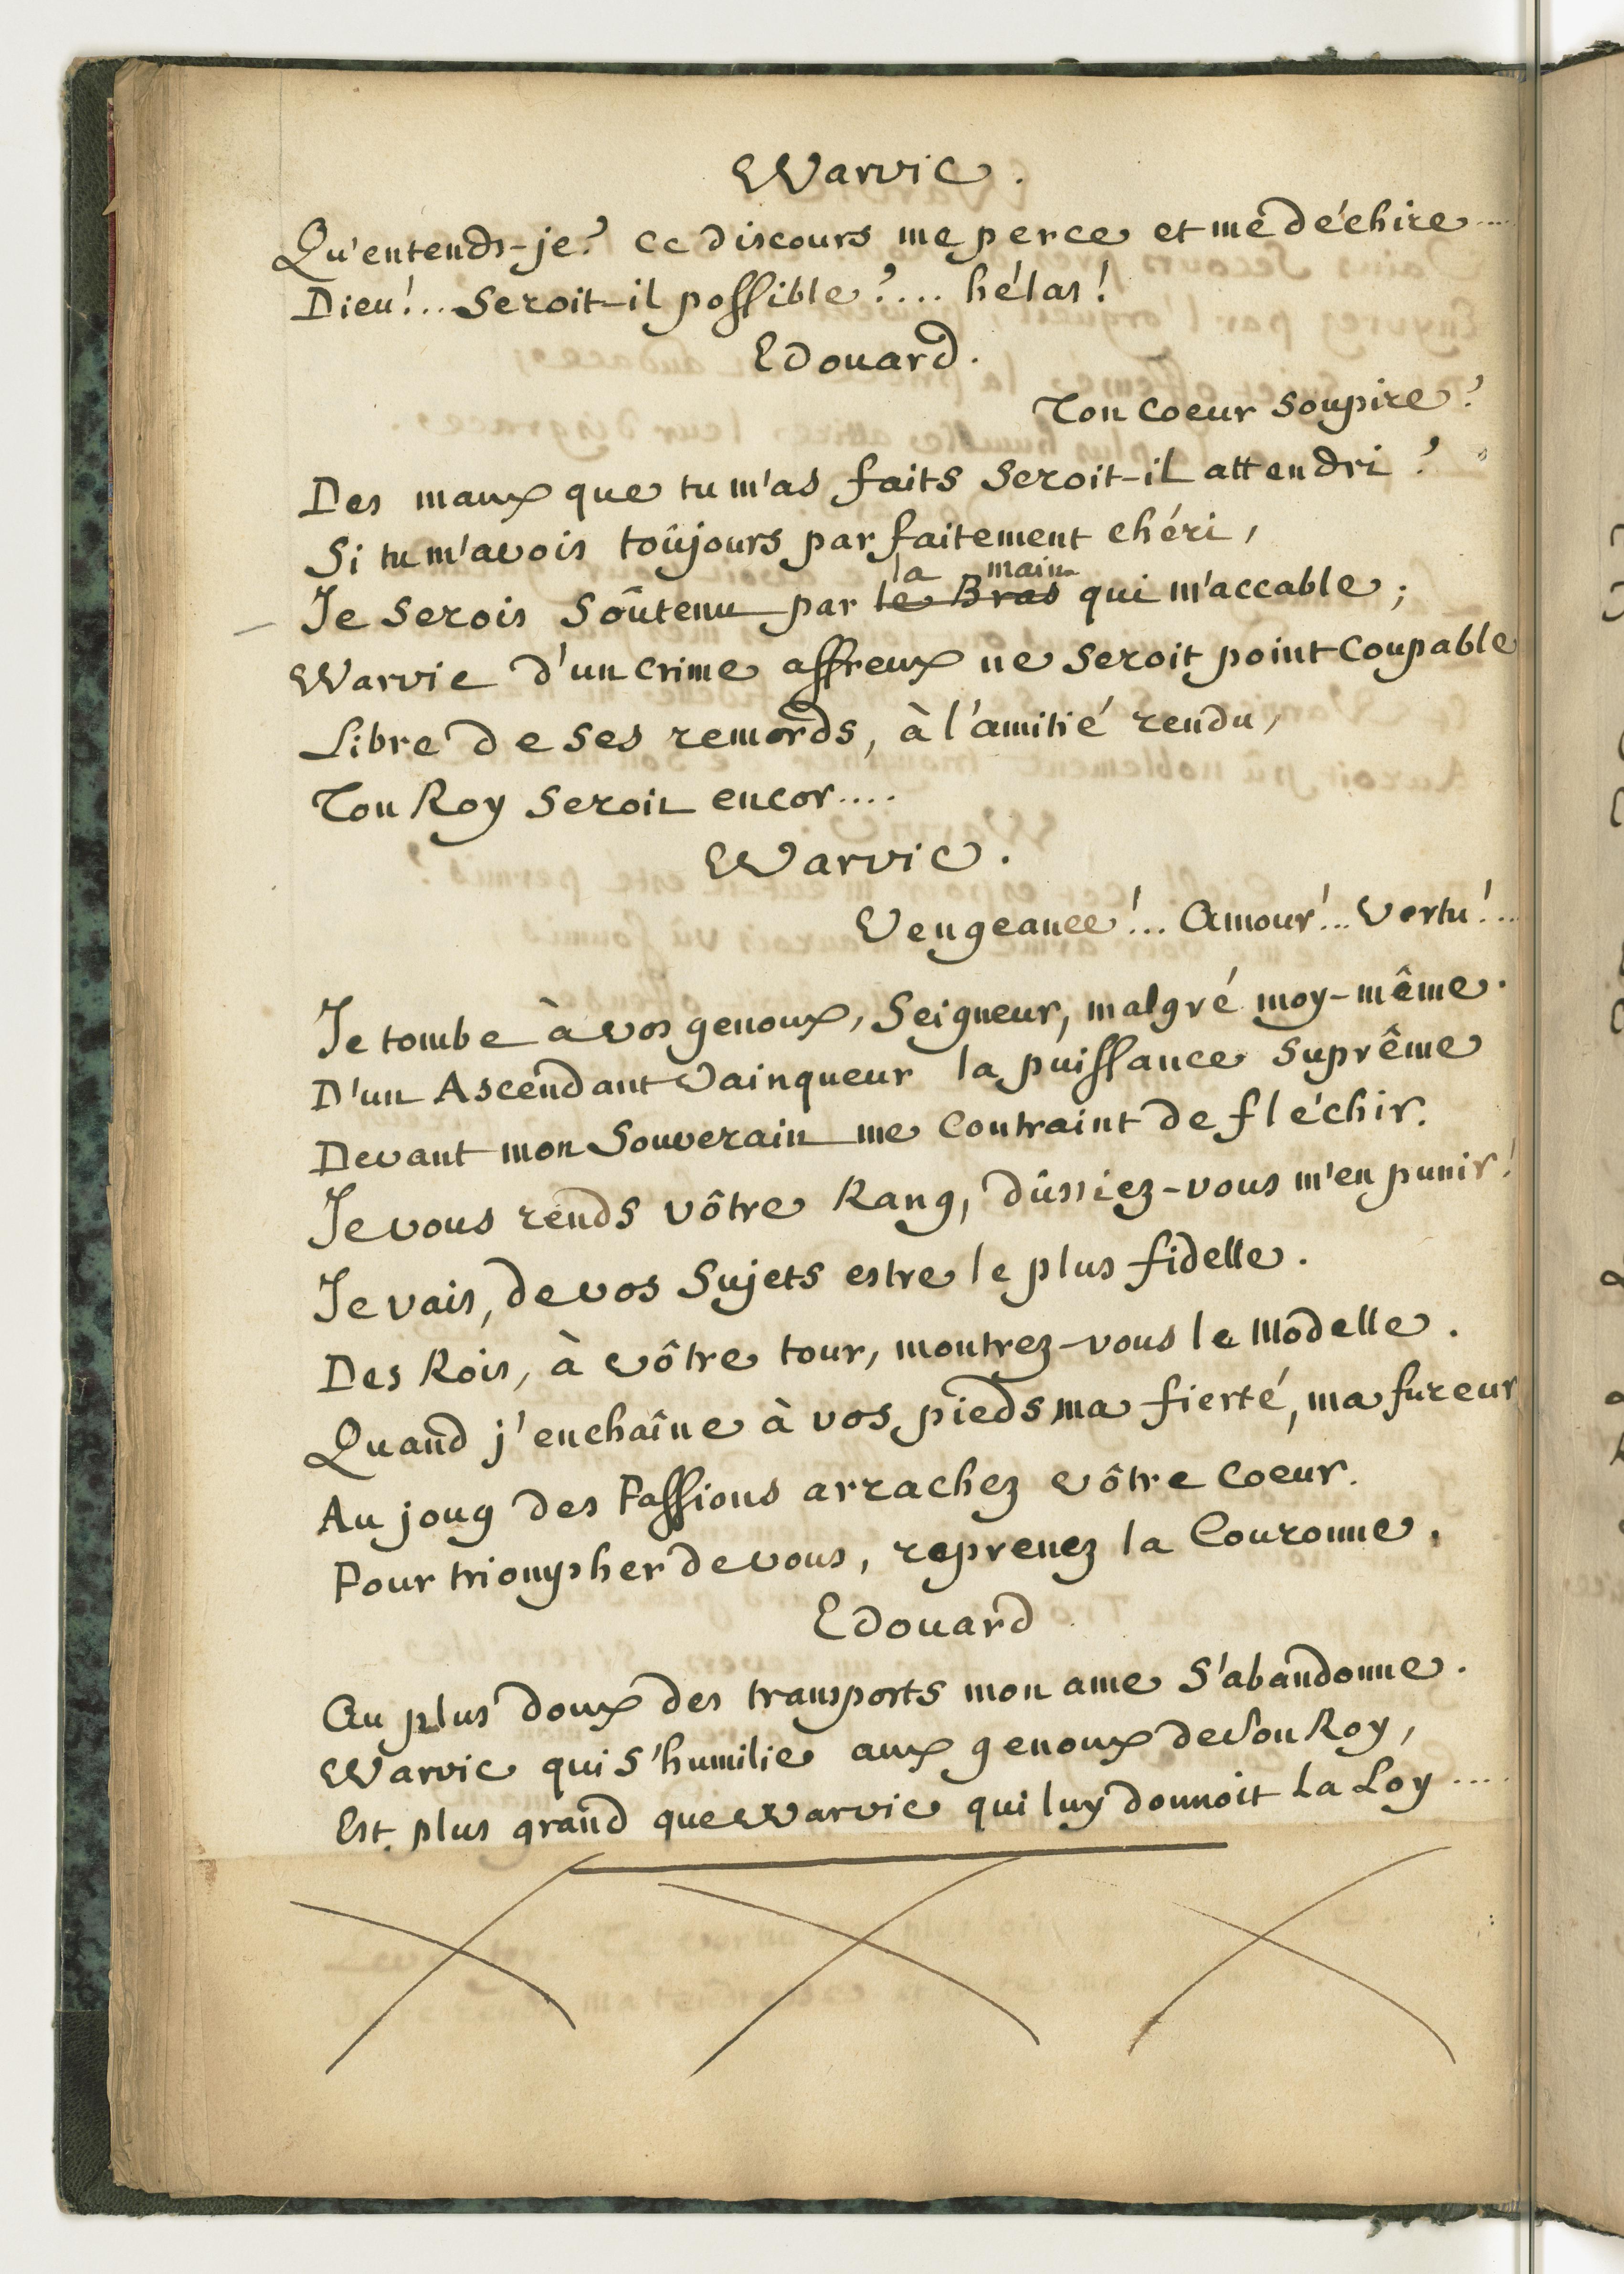 Warvic.
Qu'entends-je? ce discours me perce et me déchire....
Dieu!... Seroit-il possible?.... hélas!
Edouard.
Ton coeur soupire?
Des maux que tu m'as faits seroit-il attendri?
Si tu m'avois toûjours parfaitement chéri,
la main
Je serois soûtenu par le Bras qui m'accable;
Warvic d'un crime affreux ne seroit point coupable
Libre de ses remords, à l'amitié rendu,
Ton Roy seroit encor....
Warvic.
Vengeance!... Amour!... Vertu!...
Je tombe à vos genoux, Seigneur, malgré moy-même.
D'un Ascendant Vainqueur la puissance suprême
Devant mon Souverain me contraint de fléchir.
Je vous rends vôtre Rang, dûssiez-vous m'en punir!
Je vais, de vos Sujets estre le plus fidelle.
Des Rois, à vôtre tour, montrez-vous le Modelle.
Quand j'enchaîne à vos pieds ma fierté, ma fureur
Au joug des Passions arrachez vôtre coeur.
Pour triompher de vous, reprenez la Couronne.
Edouard
Au plus doux des transports mon ame s'abandonne.
Warvic qui s'humilie aux genoux de son Roy,
Est plus grand que Warvic qui luy donnoit la Loy....